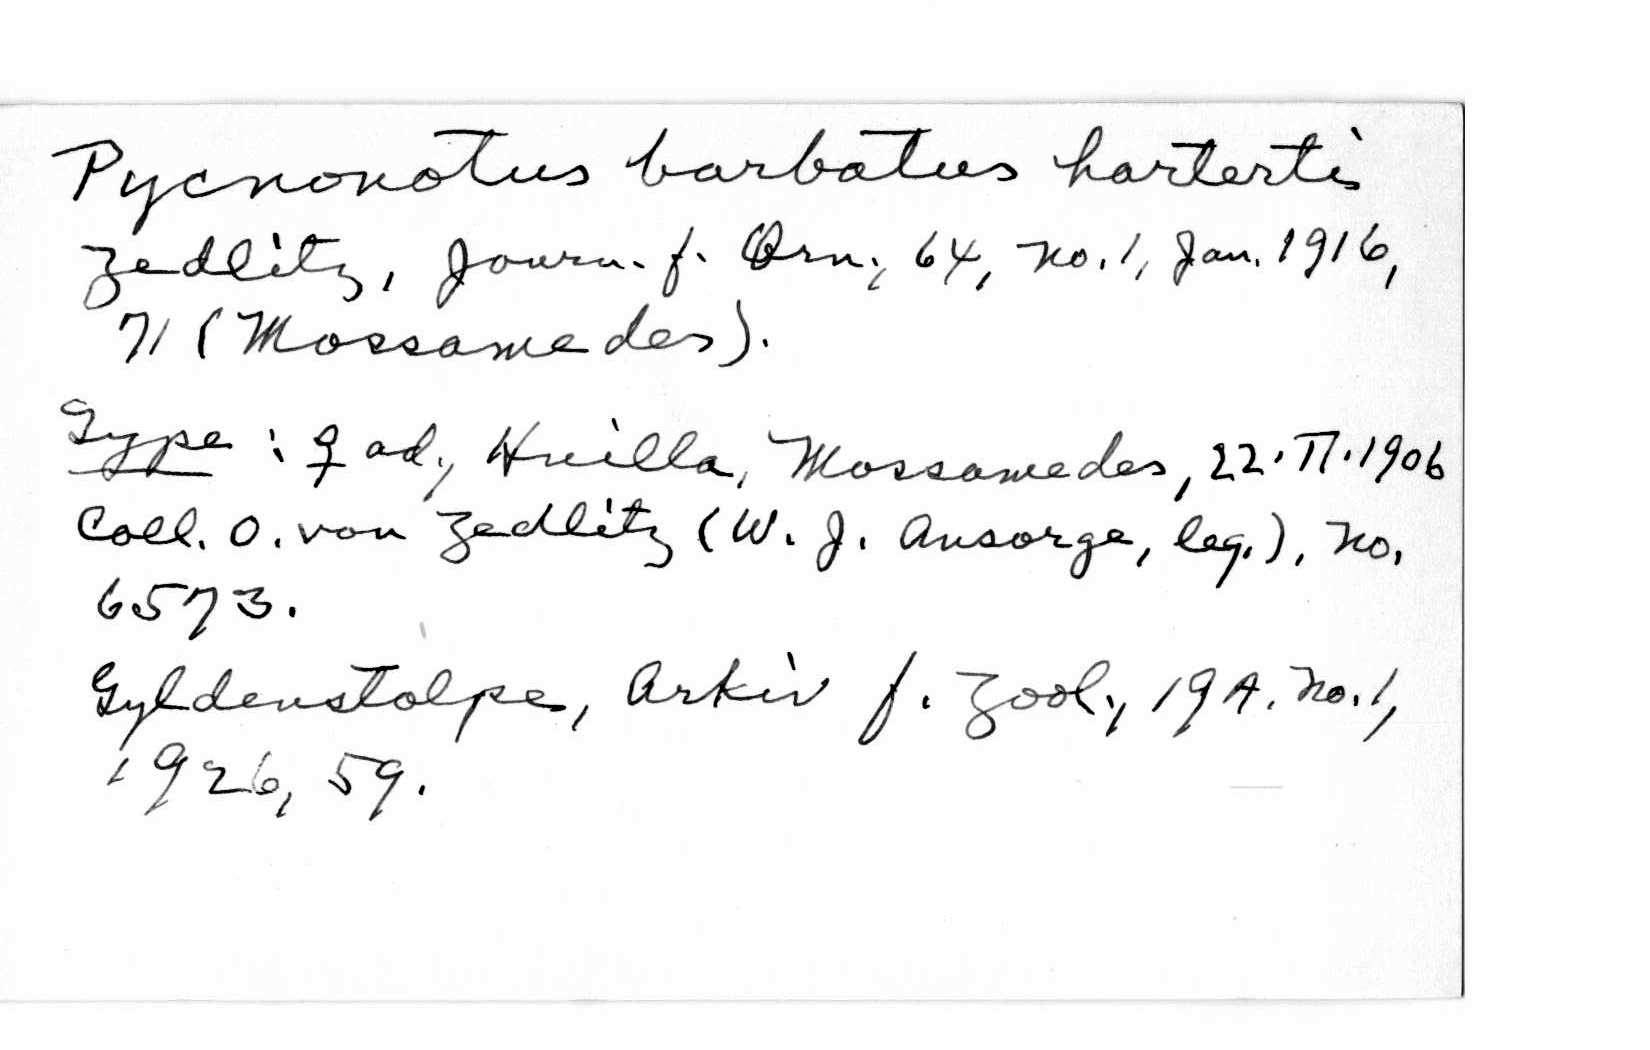 Pycnonotus barbatus harterti
Zedlitz, Journ. f. Orn., 64, No. 1, Jan. 1916,
71 (Mossamedes).
Type : ♀ ad., Huilla, Mossamedes, 22.II.1906
Coll. O. von Zedlitz (W. J. Ansorge, leg.), No.
6573.
Gyldenstolpe, Arkiv f. Zool., 19A. No. 1,
1926, 59.